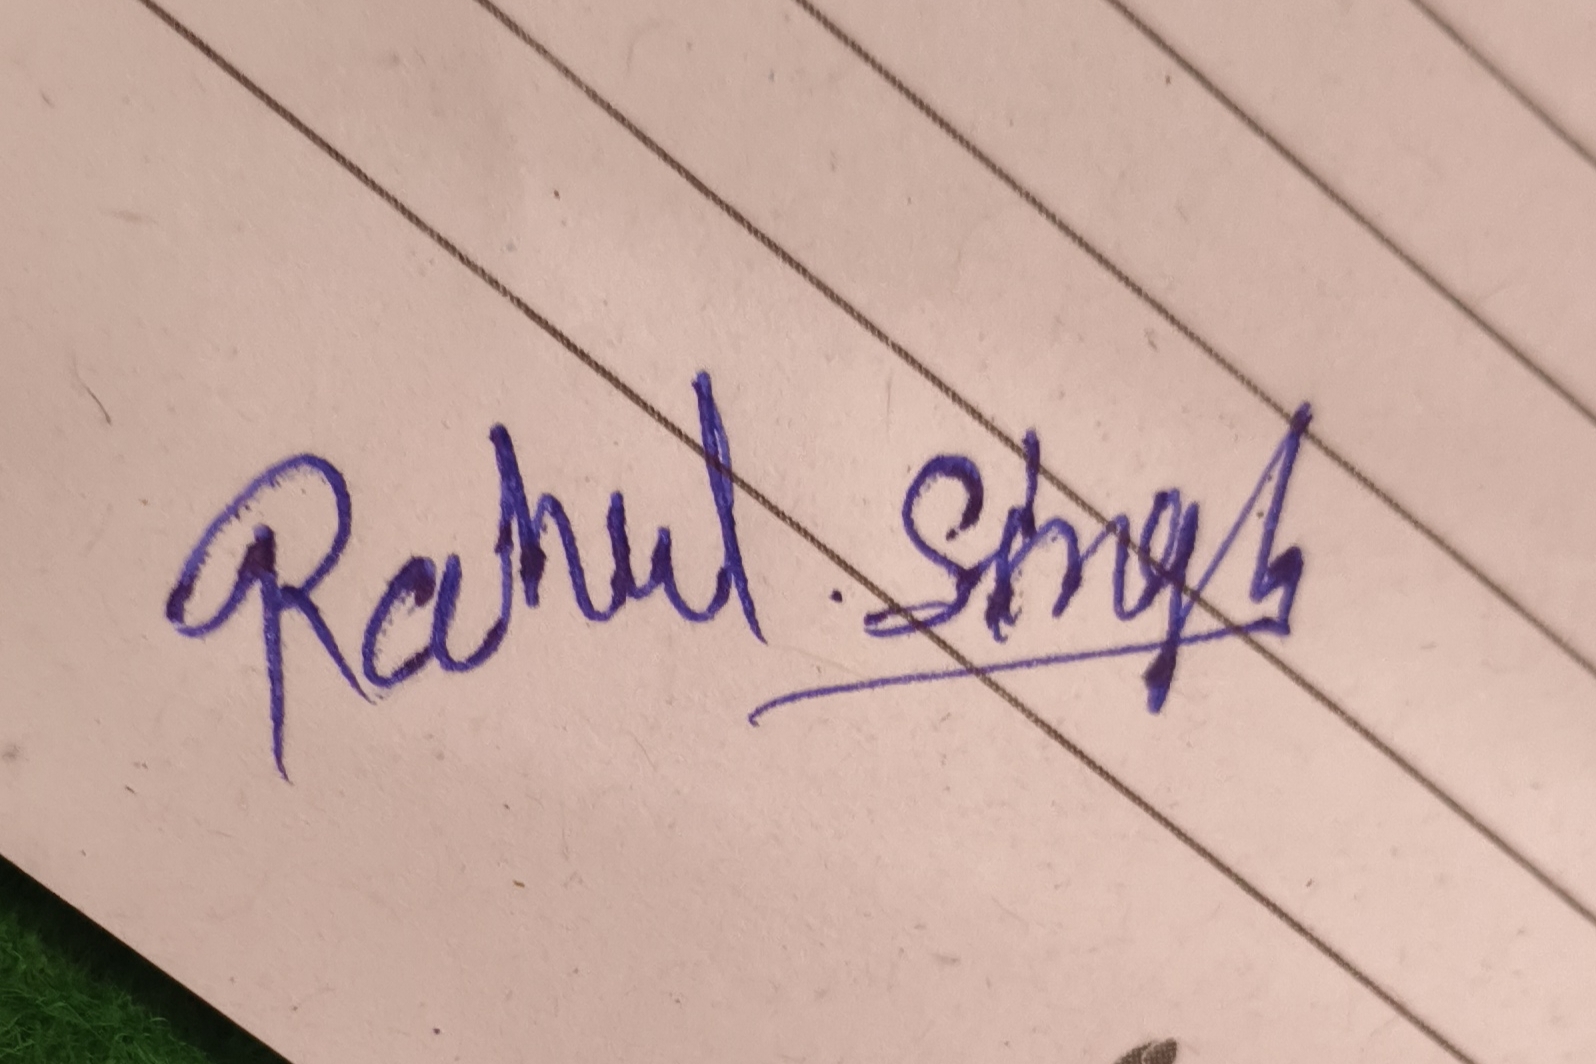 Rahul. Singh